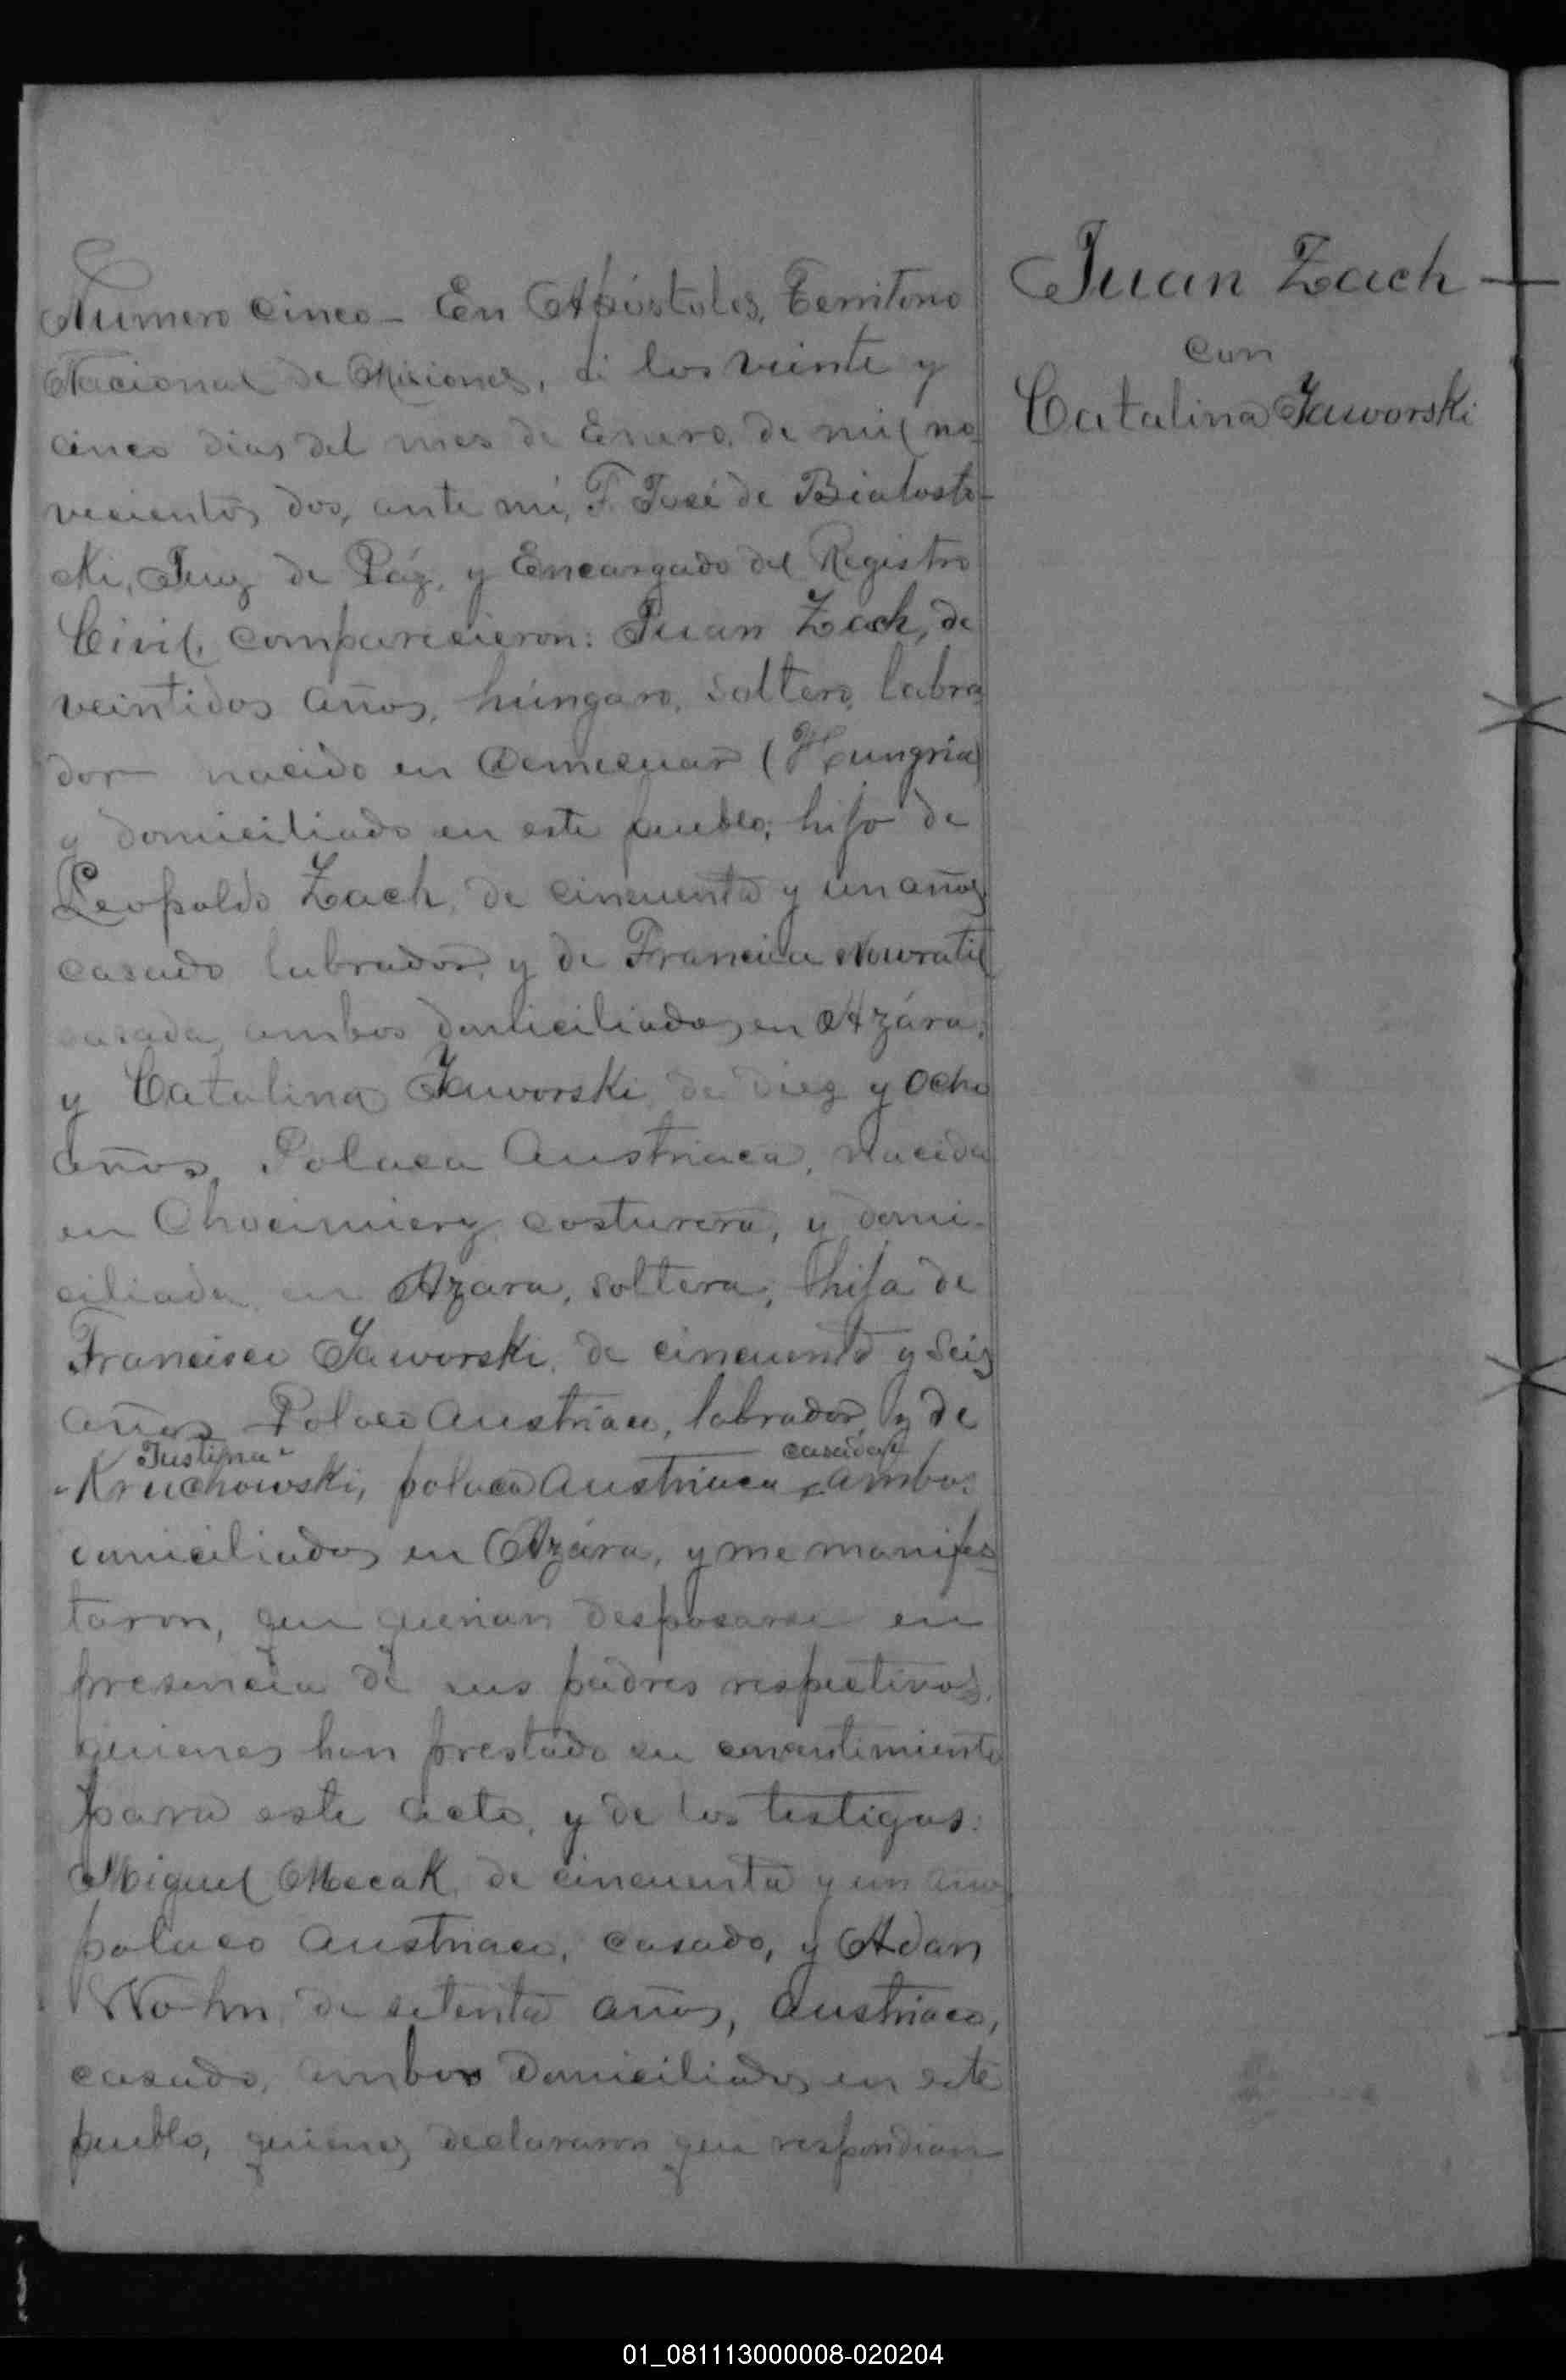 Numero cinco - En Apóstoles, Territorio
Nacional de Misiones, á los veinte y
cinco dias del mes de Enero, de mil no-
vecientos dos, ante mi, F. José de Bialosto-
cki, Juez de Páz, y Encargado del Registro
Civil, comparecieron: Juan Zach, de
veintidos años, húngaro, soltero, labra
dor nacido en (Hungria)
y domiciliado en este pueblo; hijo de
Leopoldo Zach, de cincuenta y un años
casado labrador, y de Francisca Nowratil
casada, ambos domiciliados en Azára;
y Catalina Jaworski de diez y ocho
años, Polaca Austriaca, nacida
en Chocimierz costurera, y domi-
ciliada en Azara, soltera, hija de
Francisco Jaworski, de cincuenta y seis
años Polaco Austriaco, labrador, y de
Justina casada
Kruchowski, polaca Austriaca ambos
domiciliados en Azára, y me manifes
taron, que querian desposarse en
presencia de sus padres respectivos,
quienes han prestado su consentimiento
para este acto, y de los testigos:
Miguel Mecak, de cincuenta y un años
polaco Austriaco, casado, y Adan
de setenta años, Austriaco,
casado, ambos domiciliados en este
pueblo, quienes declararon que respondian
Juan Zach
con
Catalina Jaworski
01_081113000008-020204